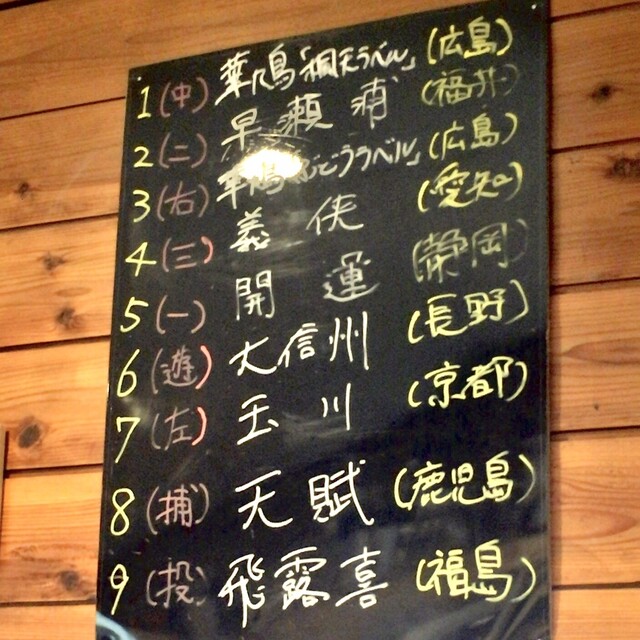 1 (中) 華鳩「桐天ラベル」 (広島)
2 (二) 早瀬浦 (福井)
3 (右) 華鳩 ラベル」 (広島)
4 (三) 義侠 (愛知)
5 (一) 開運 (静岡)
6 (遊) 大信州 (長野)
7 (左) 玉川 (京都)
8 (捕) 天賦 (鹿児島)
9 (投) 飛露喜 (福島)